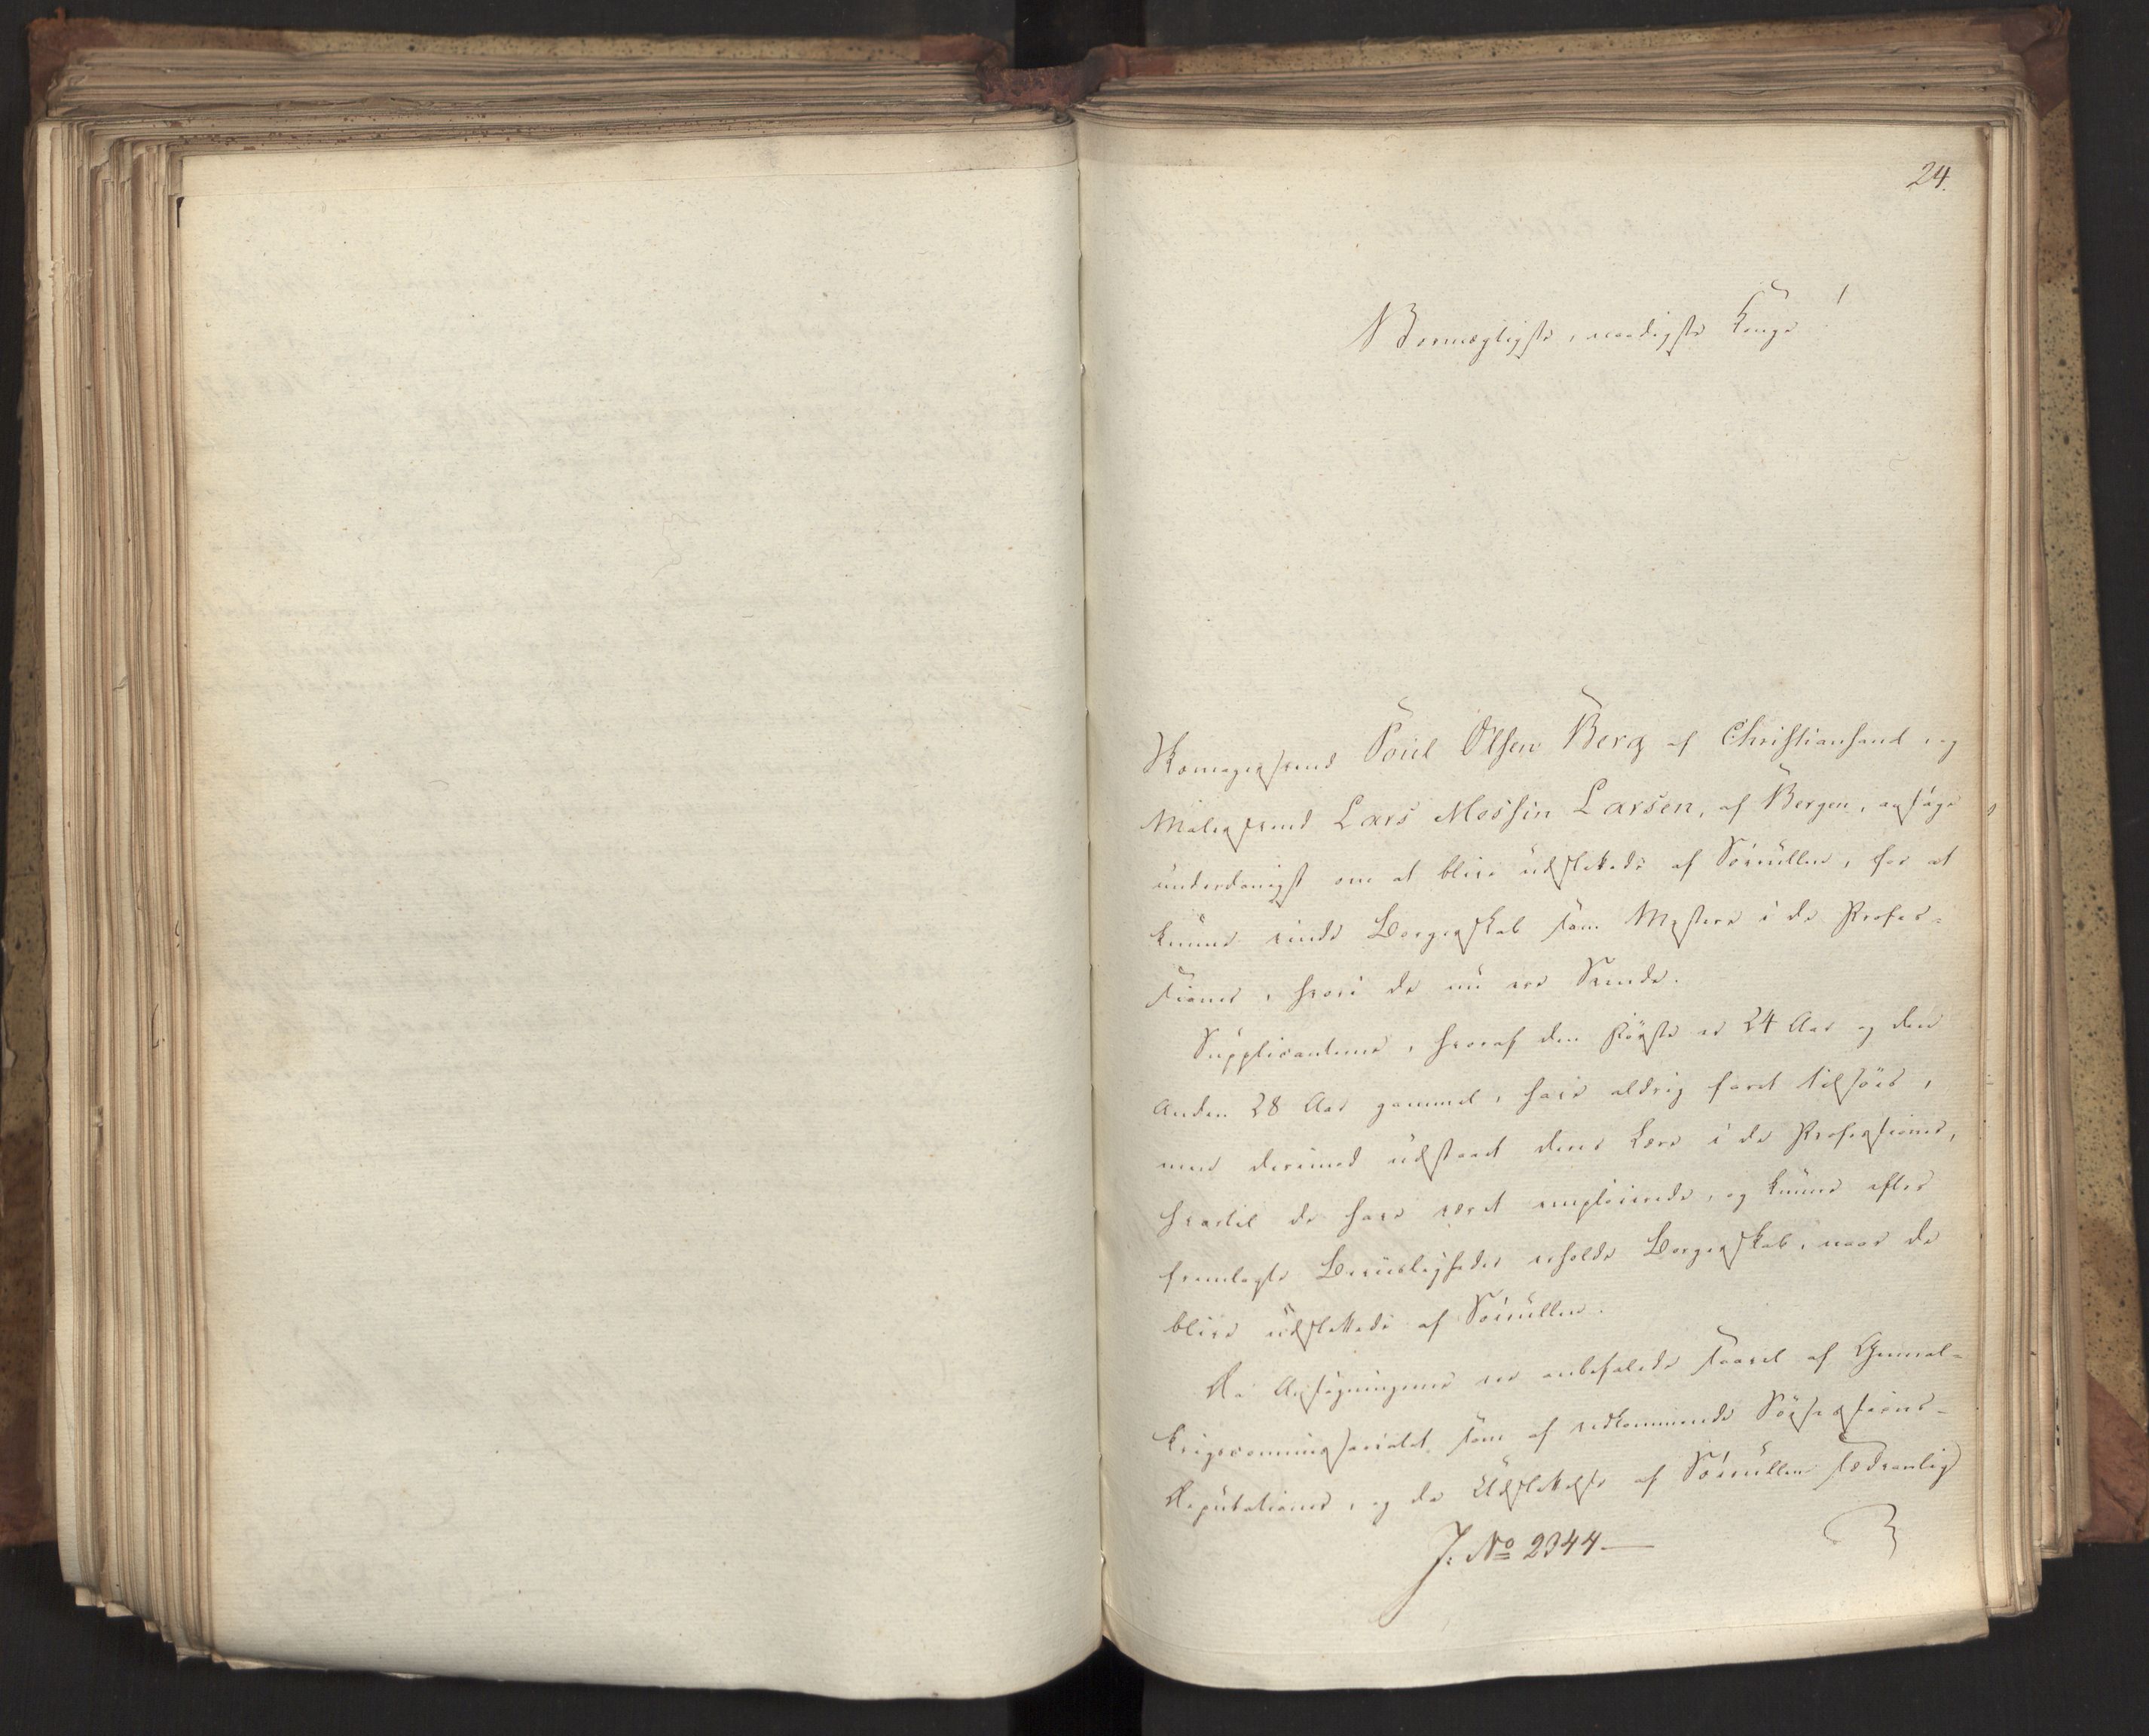 24.
Stormægtigste, naadigste Konge!
Skomagersvend Poul Olsen Berg af Christiansand, og
Malersvend Lars Messin Larsen, af Bergen, ansöge
underdanigst om at blive udslettede af Sörullen, for at
kunne vinde Borgerskab som Mestere i de Profes-
sioner, hvori de nu ere Svende.
Supplicanterne, hvoraf den förste er 24 Aar og den
Anden 28 Aar gammel, have aldrig faret tilsöes,
men derimod udstaaet deres Lære i de Professioner,
hvortil de have været emploierede, og kunne efter
fremlagte Beviisligheder erholde Borgerskab, naar de
blive udslettede af Sörullen.
Da Ansögningerne ere anbefalede saavel af General-
krigscommissariatet som af vedkommende Sösessions-
Deputationer, og da Udslettelse af Sörullen sædvanlig
J: No 2344 —